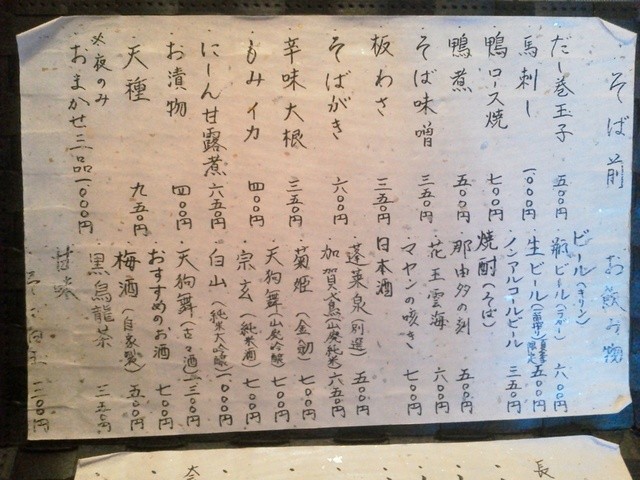 そば前
だし巻玉子 五〇〇円
馬刺し 一、〇〇〇円
鴨ロース焼 七〇〇円
鴨煮 五〇〇円
そば味噌 三五〇円
板わさ 三五〇円
そばがき 六〇〇円
辛味大根 三五〇円
もみイカ 四〇〇円
にしん甘露煮 六五〇円
お漬物 四〇〇円
天種 九五〇円
※夜のみ
おまかせ三品 一、〇〇〇円
お飲み物
ビール(キリン)
瓶ビール(ラガー) 六〇〇円
生ビール(一番搾り) 五〇〇円
ノンアルコールビール 三五〇円
焼酎(そば)
那由多の刻 五〇〇円
花王雲海 六〇〇円
マヤンの呟き 七〇〇円
日本酒
蓬莱泉(別選) 五〇〇円
加賀鳶(山廃純米) 六五〇円
菊姫(金劔) 七〇〇円
天狗舞(山廃吟醸) 七〇〇円
宗玄(純米酒) 七〇〇円
白山(純米大吟醸) 一、〇〇〇円
天狗舞(古々酒) 一、三〇〇円
おすすめのお酒 七〇〇円
梅酒(自家製) 五〇〇円
黒烏龍茶 三五〇円
甘味
長